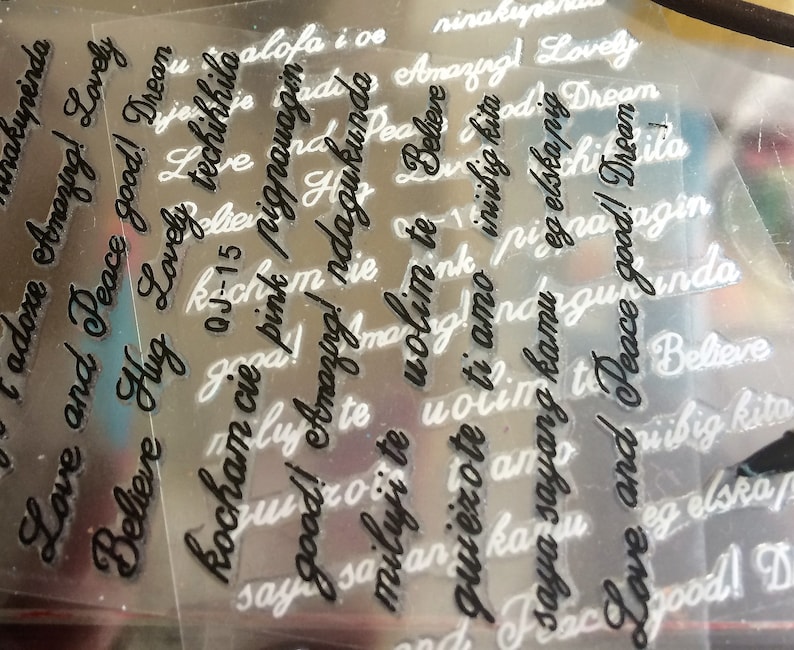 ninakupenda
t'adore Amazing! Lovely
Love and Peace good! Dream
Believe Hug Lovely techihhila
QJ-15
kocham cie pink pignauagin
good! Amazing! ndagukunda
miluji te uolim te Believe
quiezote ti amo iniibig kita
saya sayang kamu eg elska pig
Love and Peace good! Dream
alofa i oe ninakupenda
Amazing! Lovely
Love and Peace good! Dream
Believe Hug
kocham cie pignauagin
good! Amazing! ndagukunda
miluji te uolim te Believe
amo iniibig kita
saya kamu eg elska
and Peace good!